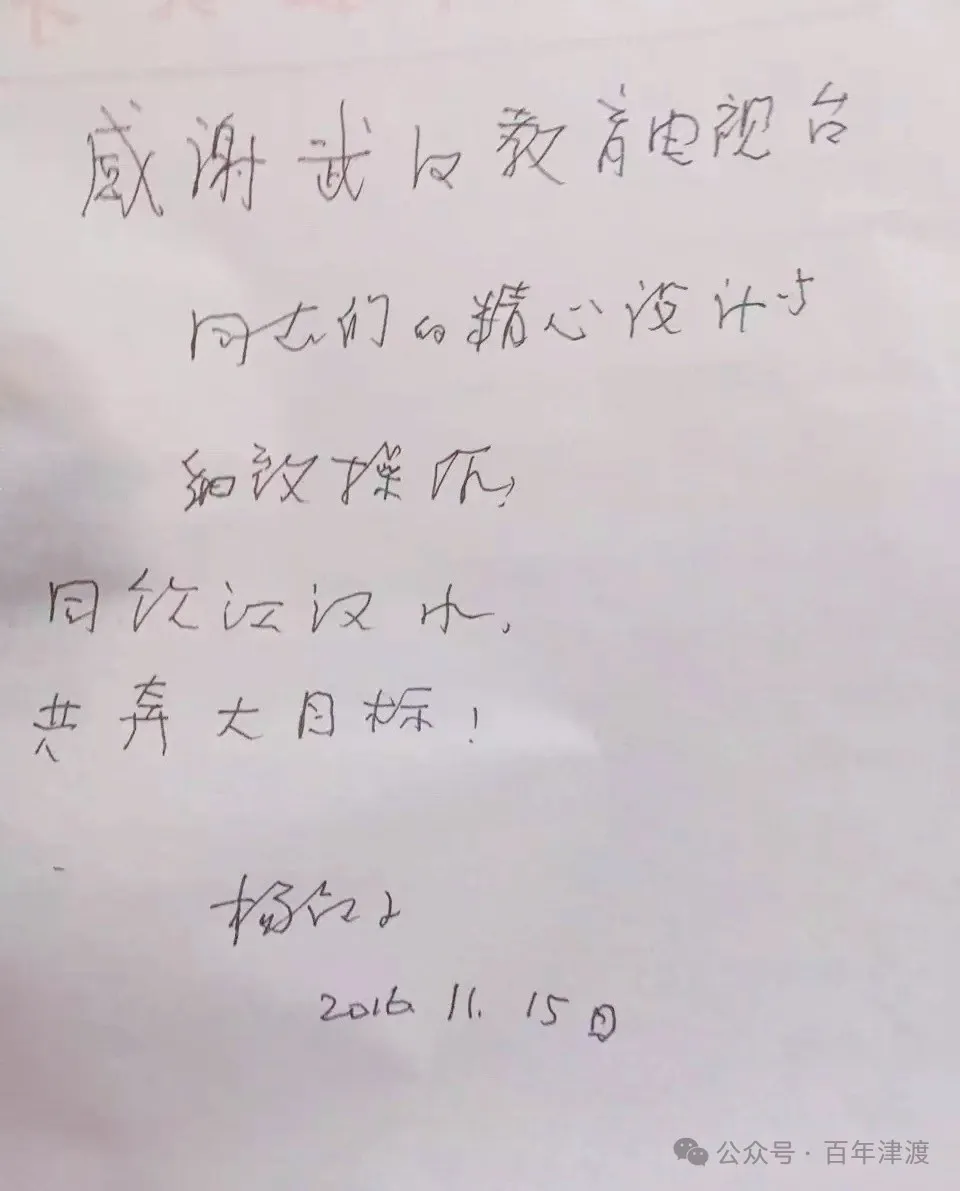 感谢武汉教育电视台
同志们的精心设计与
细致操作,
同饮江汉水,
共奔大目标!
杨
2016. 11. 15日
公众号 · 百年津渡